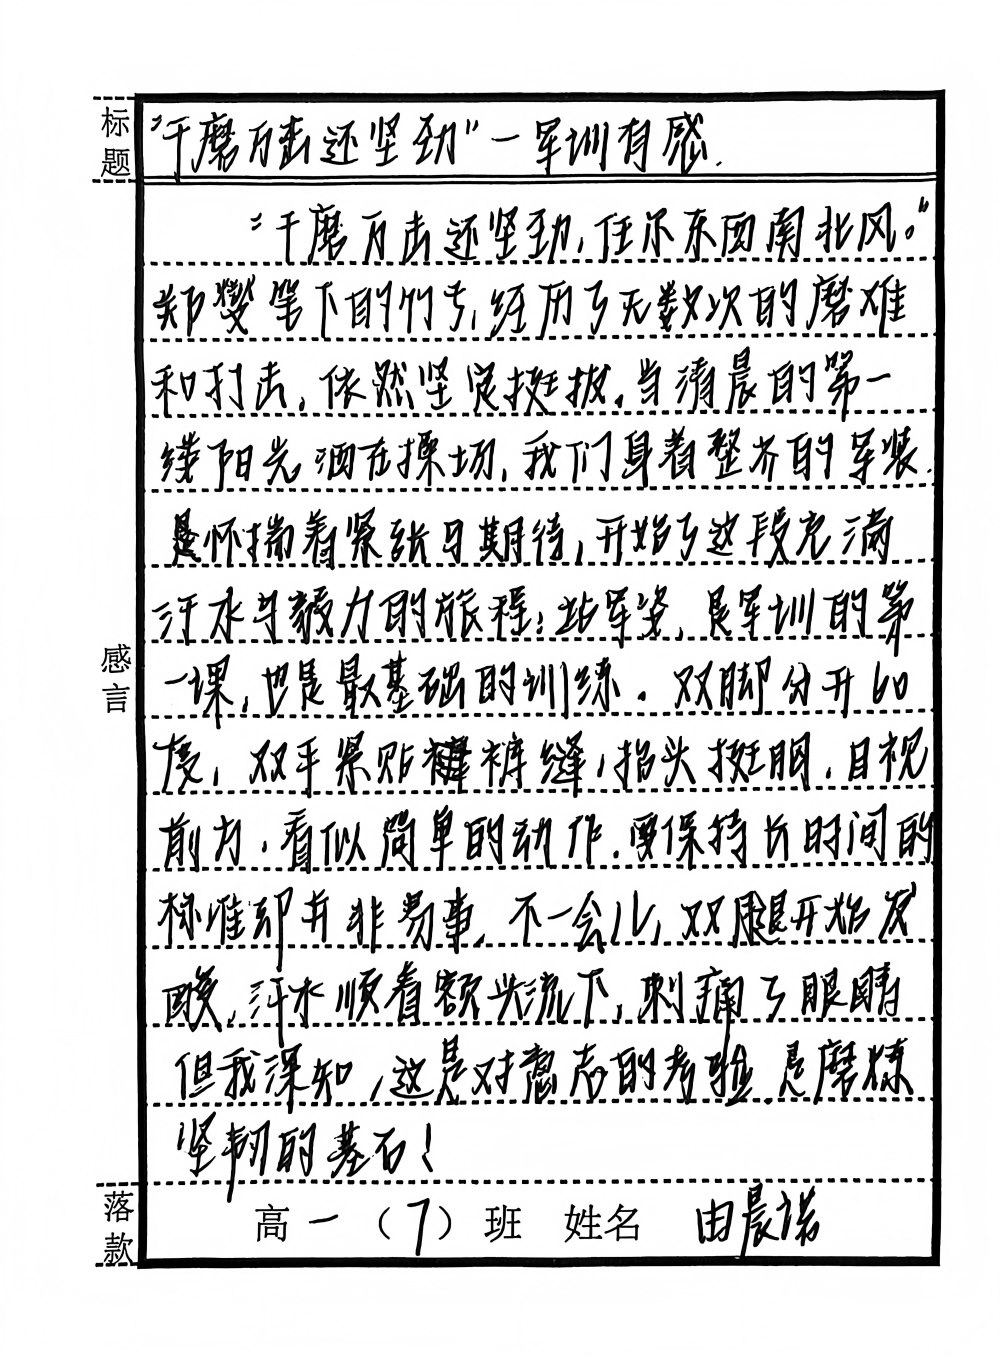 标题
"千磨万击还坚劲"一军训有感.
"千磨万击还坚劲,任尔东西南北风。"
郑燮笔下的竹子,经历了无数次的磨难
和打击,依然坚定挺拔。当清晨的第一
缕阳光洒在操场,我们身着整齐的军装
是怀揣着紧张与期待,开始了这段充满
汗水与毅力的旅程;站军姿,是军训的第
一课,也是最基础的训练。双脚分开60
度,双手紧贴裤缝,抬头挺胸,目视
前方,看似简单的动作,要保持长时间的
标准却并非易事,不一会儿,双腿开始发
酸,汗水顺着额头流下,刺痛了眼睛
但我深知,这是对意志的考验,是磨炼
坚韧的基石!
感言
落款
高一(7)班 姓名 由晨诺